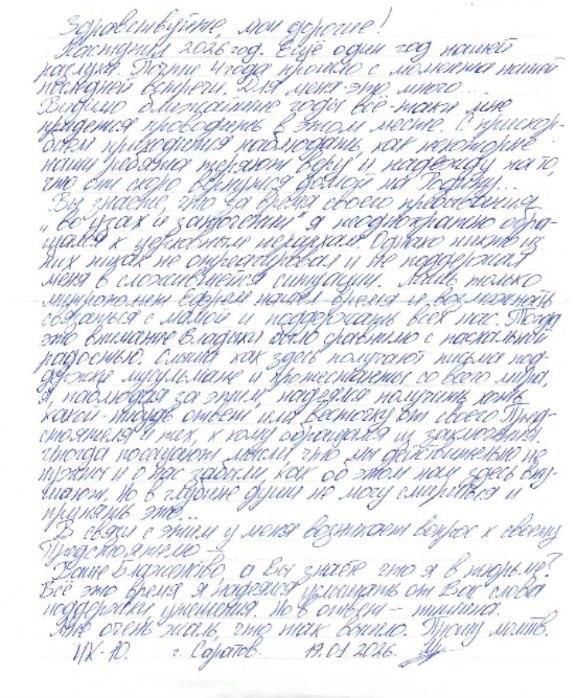 Здравствуйте, мои дорогие!
Наступил 2026 год. Ещё один год нашей
разлуки. Почти 4 года прошло с момента нашей
последней встречи. Для меня это много...
Видимо ближайшие годы всё-таки мне
придется проводить в этом месте. С прискор-
бием приходится наблюдать как некоторые
наши ребята теряют веру и надежду на то,
что они скоро вернутся домой на Родину...
Вы знаете, что за время своего пребывания
„во узах и заточении" я неоднократно обра-
щался к церковным иерархам. Однако никто из
них никак не отреагировал и не поддержал
меня в сложившейся ситуации. Лишь только
митрополит Ефрем нашел время и возможность
связаться с мамой и поддержать всех нас. Тогда
это внимание Владыки было сравнимо с пасхальной
радостью. Слыша как здесь получают письма под-
держки мусульмане и протестанты со всего мира,
я, наблюдая за этим, надеялся получить хоть
какой-нибудь ответ или весточку от своего Пред-
стоятеля и тех, к кому обращался из заключения.
Иногда посещают мысли что мы действительно не
нужны и о нас забыли, как об этом нам здесь вну-
шают. Но в глубине души не могу смириться и
принять это...
В связи с этим у меня возникает вопрос к своему
Предстоятелю —
Ваше Блаженство, а Вы знаете что я в тюрьме?
Всё это время я надеялся услышать от Вас слова
поддержки утешения. Но в ответ - тишина.
Мне очень жаль, что так вышло. Прошу молитв.
ИК-10. г. Саратов. 19.01.2026.